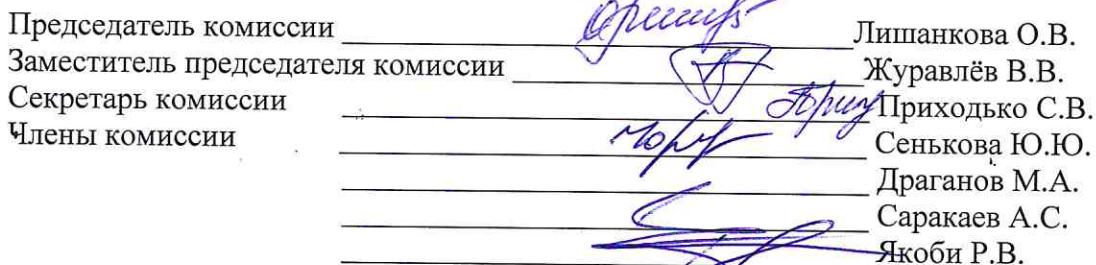 Председатель комиссии Лишанкова О.В.
Заместитель председателя комиссии Журавлёв В.В.
Секретарь комиссии Приходько С.В.
Члены комиссии Сенькова Ю.Ю.
Драганов М.А.
Саракаев А.С.
Якоби Р.В.